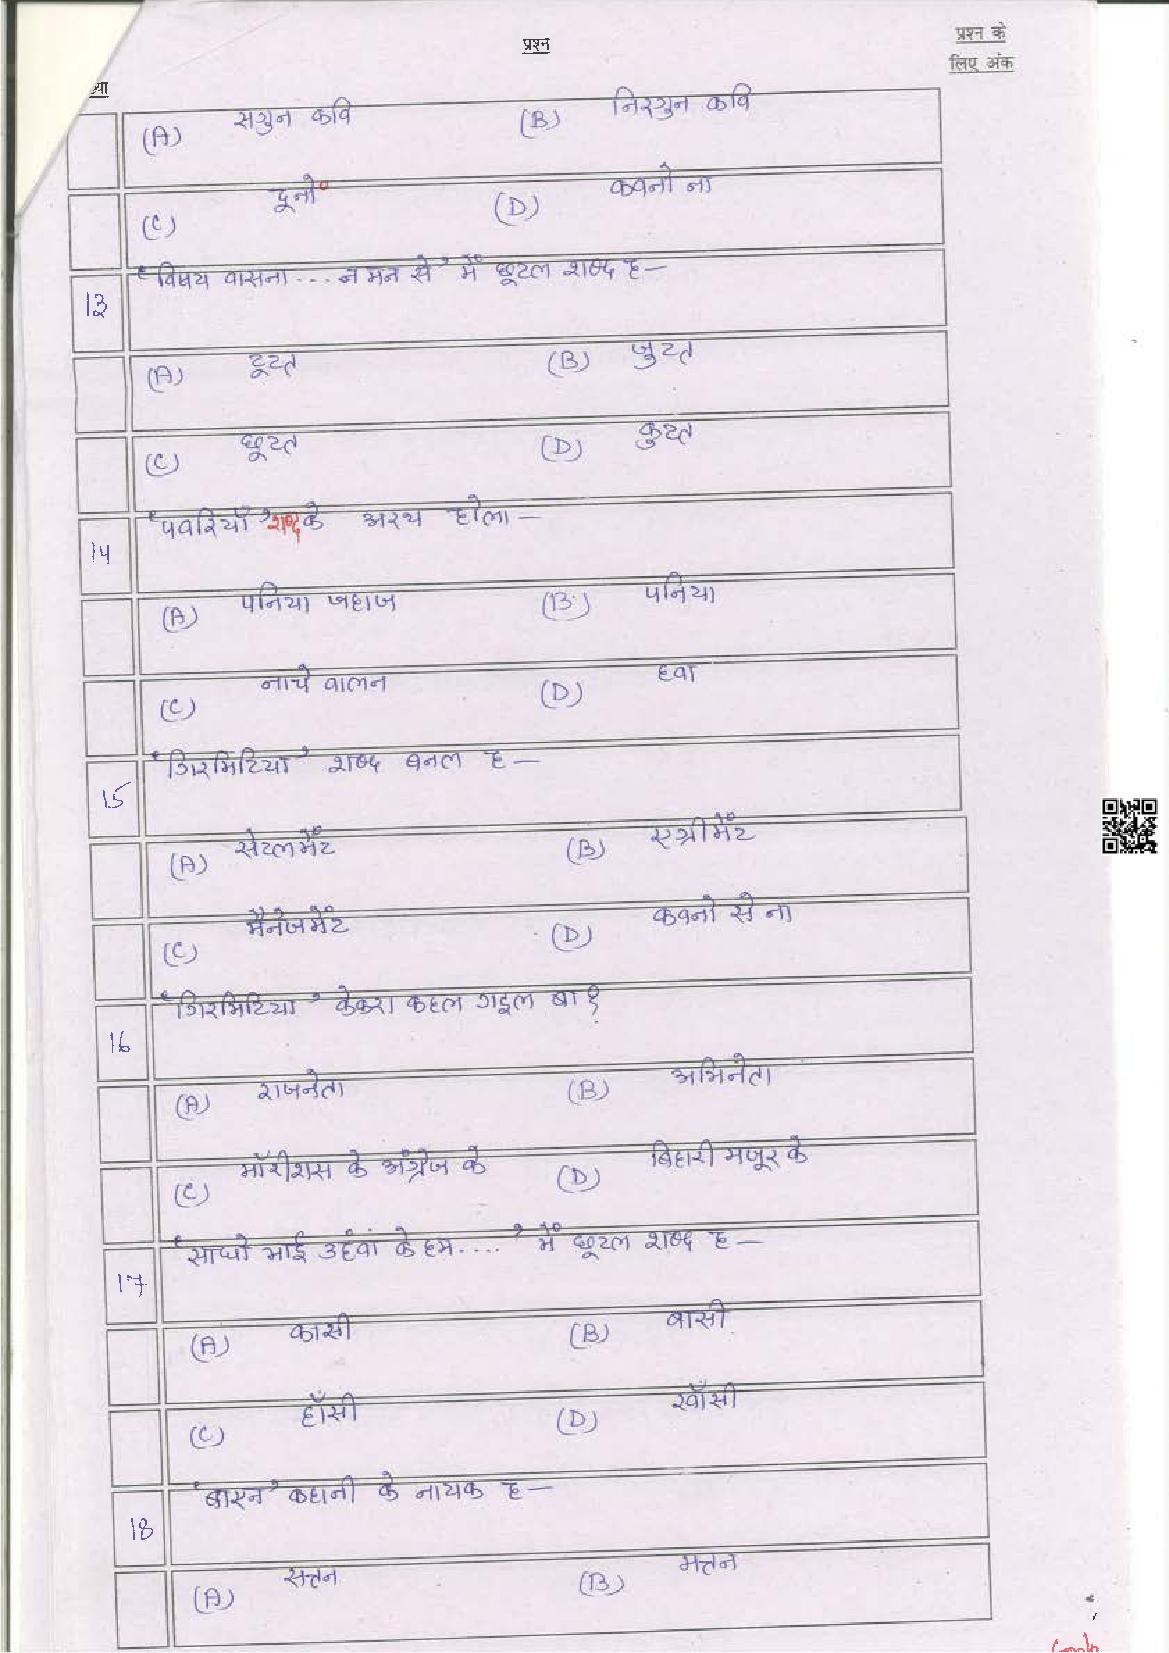 प्रश्न
प्रश्न के
लिए अंक
ख्या
(A) सगुन कवि (B) निरगुन कवि
(C) दूनो (D) कवनो ना
13 'विषय वासना ... न मन से' में छूटल शब्द ह—
(A) टूटत (B) जुटत
(C) छूटत (D) कुटत
14 'पवरियाँ' शब्द के अरथ होला—
(A) पनिया जहाज (B) पनिया
(C) नाचे वालन (D) हवा
15 'गिरमिटिया' शब्द बनल ह—
(A) सेटलमेंट (B) एग्रीमेंट
(C) मैनेजमेंट (D) कवनो से ना
16 'गिरमिटिया' केकरा कहल गइल बा?
(A) राजनेता (B) अभिनेता
(C) मॉरीशस के अंग्रेज के (D) बिहारी मजूर के
17 'साधो भाई उहंवां के हम.....' में छूटल शब्द ह—
(A) कासी (B) बासी
(C) हाँसी (D) खाँसी
18 कहानी के नायक ह—
(A) सत्तन (B) मत्तन